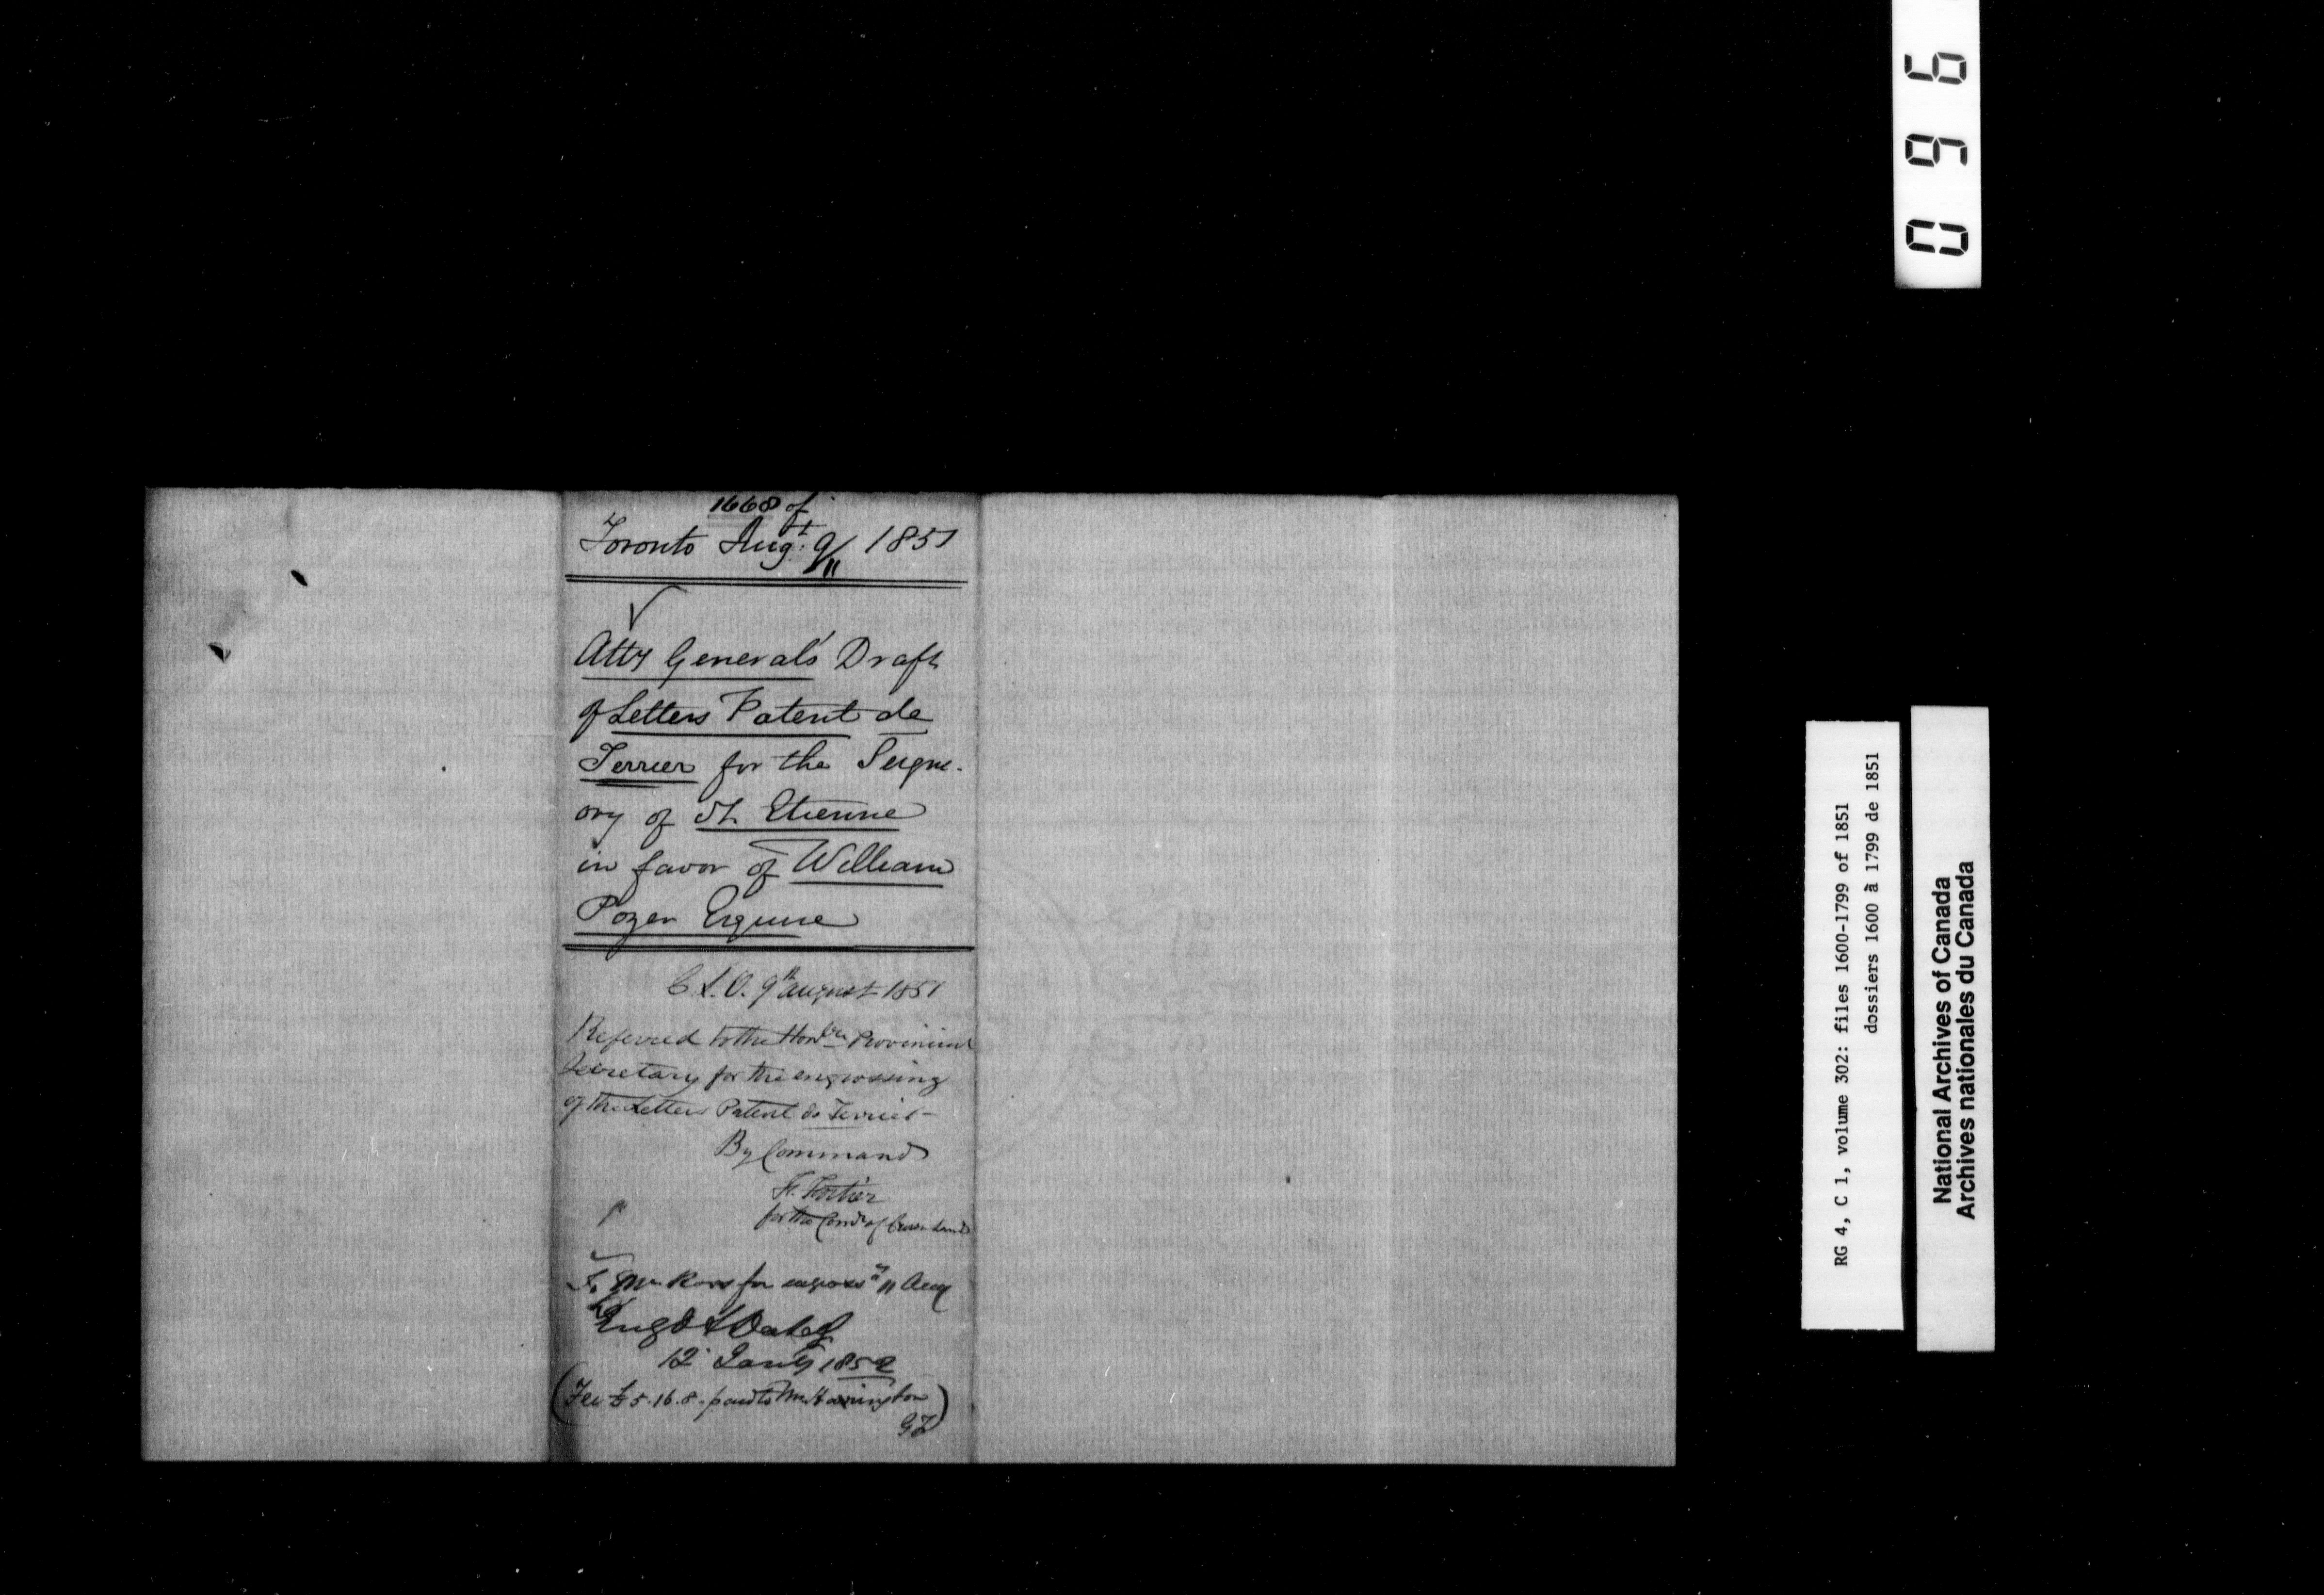 1668 of
Toronto Augt. 9/11 1851
Atty General's Draft
of Letters Patent de
Terrier for the Seigne-
ory of St. Etienne
in favor of William
Pozer Esquire
C. L. O. 9th august 1851
Referred to the Honble Provincial
Secretary for the engrossing
of the Letters Patent de Terrier -
By Command
F. Fortier
for the Comr of Crown Lands
To Mr Ross for engrossg 11 Aug
Engd & Dated
12 Jany 1852
(Fee £5.16.8. paid to Mr Harrington
096
RG 4, C 1, volume 302: files 1600-1799 of 1851
dossiers 1600 à 1799 de 1851
National Archives of Canada
Archives nationales du Canada